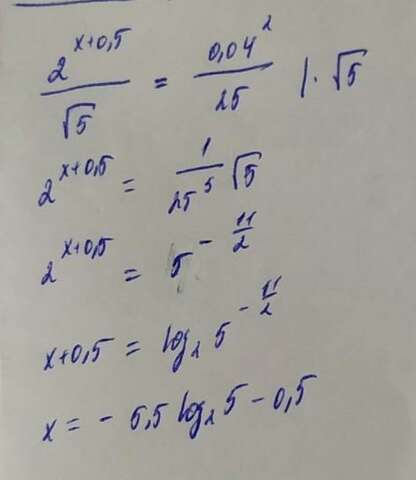 2^{x+0,5} / √5 = 0,04^2 / 25 | · √5
2^{x+0,5} = 1 / 25^3 √5
2^{x+0,5} = 5^{-11/2}
x+0,5 = log_2 5^{-11/2}
x = - 5,5 log_2 5 - 0,5